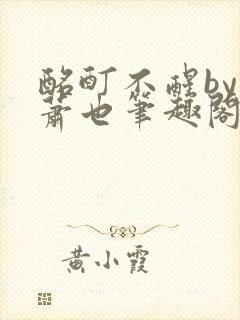 酩酊不醒by
萧也笔趣阁
黄小霞